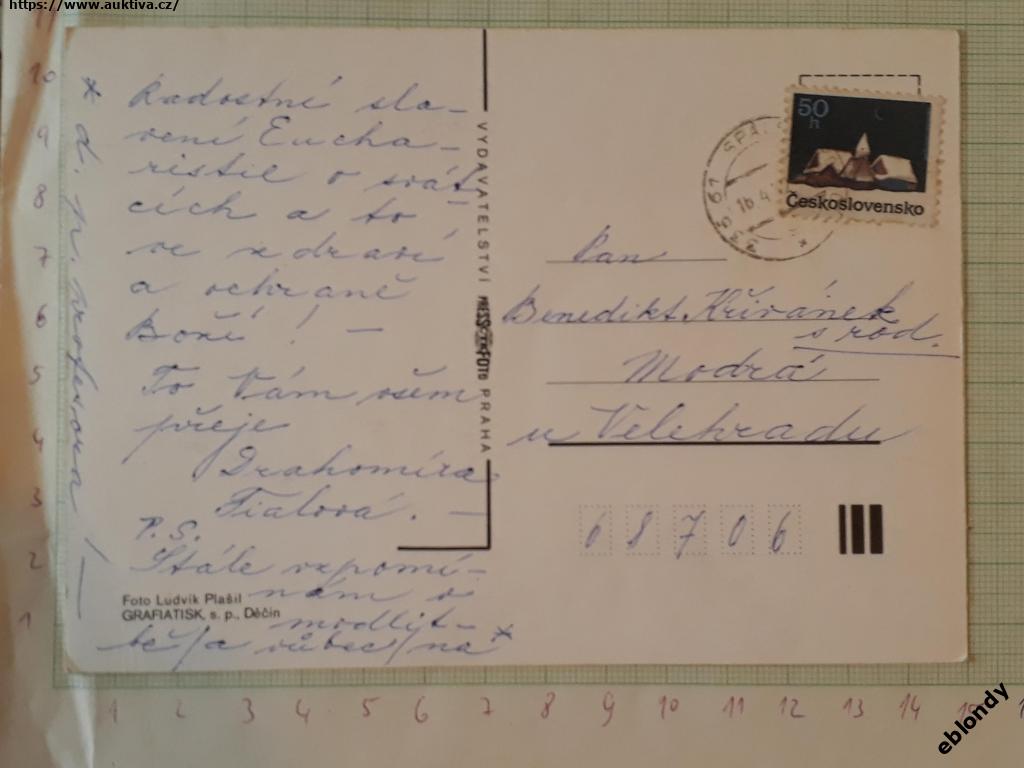 https://www.auktiva.cz/
Radostné sla-
vení Eucha-
ristie v svát-
cích a to
ve zdraví
a ochraně
Boží! -
To Vám všem
přeje
Drahomíra
Fialová. -
P.S.
Stále vzpomí-
nám v
modlit-
bě/a vůbec/na *
* d. p. profesora! -
Foto Ludvík Plašil
GRAFIATISK, s. p., Děčín
VYDAVATELSTVÍ PRESSFOTO PRAHA
335 61 SPÁL
16.4
50
h
Československo
Pan
Benedikt Křivánek
s rod.
Modrá
u Velehradu
68706
10
9
8
7
6
5
4
3
2
1
1 2 3 4 5 6 7 8 9 10 11 12 13 14 15
eblondy